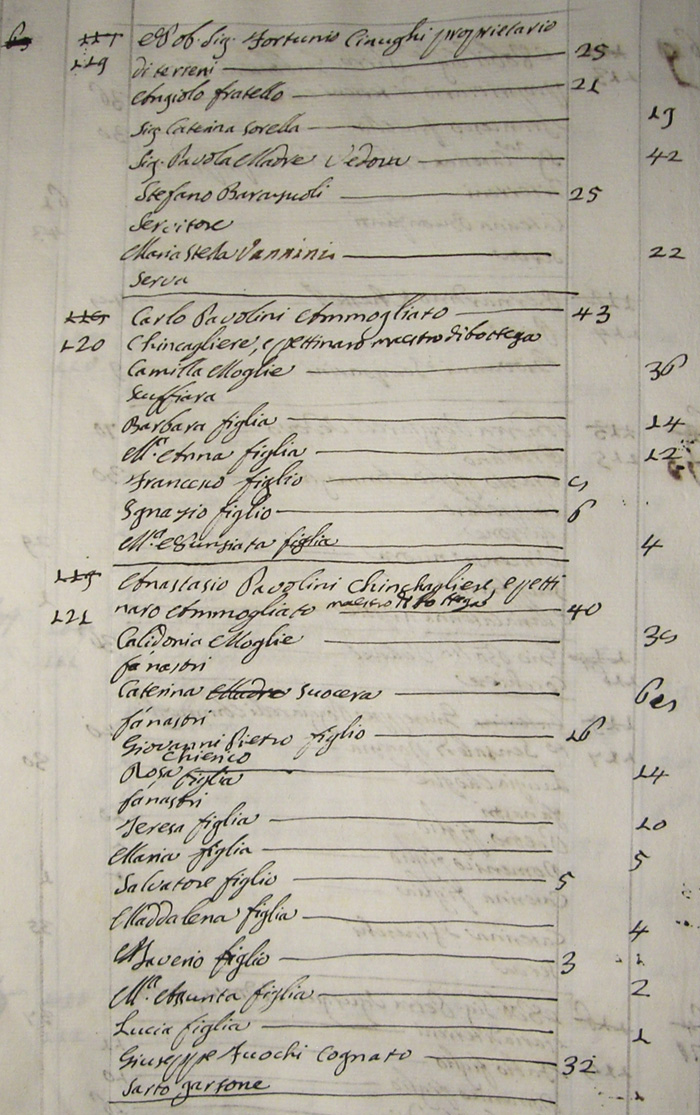 117 Nob. Sig. Fortunio Cinughi proprietario
119 di terreni 25
Angiolo fratello 21
Sig. Caterina Sorella 19
Sig. Pavola Madre Vedova 42
Stefano Baragnoli 25
Servitore
Maria Stella Vannini 22
Serva
Carlo Pavolini Ammogliato 43
120 Chincagliere, e pettinaro maestro di bottega
Camilla Moglie 36
Scuffiara
Barbara figlia 14
M.a Anna figlia 12
Francesco figlio 9
Ignazio figlio 6
M.a Nunsiata figlia 4
119 Anastasio Pavolini Chinchagliere, e petti
121 naro Ammogliato maestro di bottega 40
Calidonia Moglie 39
fà nastri
Caterina Madre Suocera
fà nastri
Giovanni Pietro figlio 16
Chierico
Rosa figlia 14
fà nastri
Teresa figlia 10
Maria figlia 5
Salvatore figlio 5
Maddalena figlia 4
Saverio figlio 3
M.a Assunta figlia 2
Lucia figlia 1
Giuseppe Fuochi Cognato 32
Sarto garzone